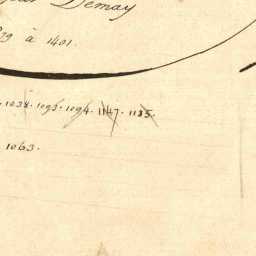 Demay
79 à 1401.
1038. 1093. 1094. 1147. 1185.
1063.